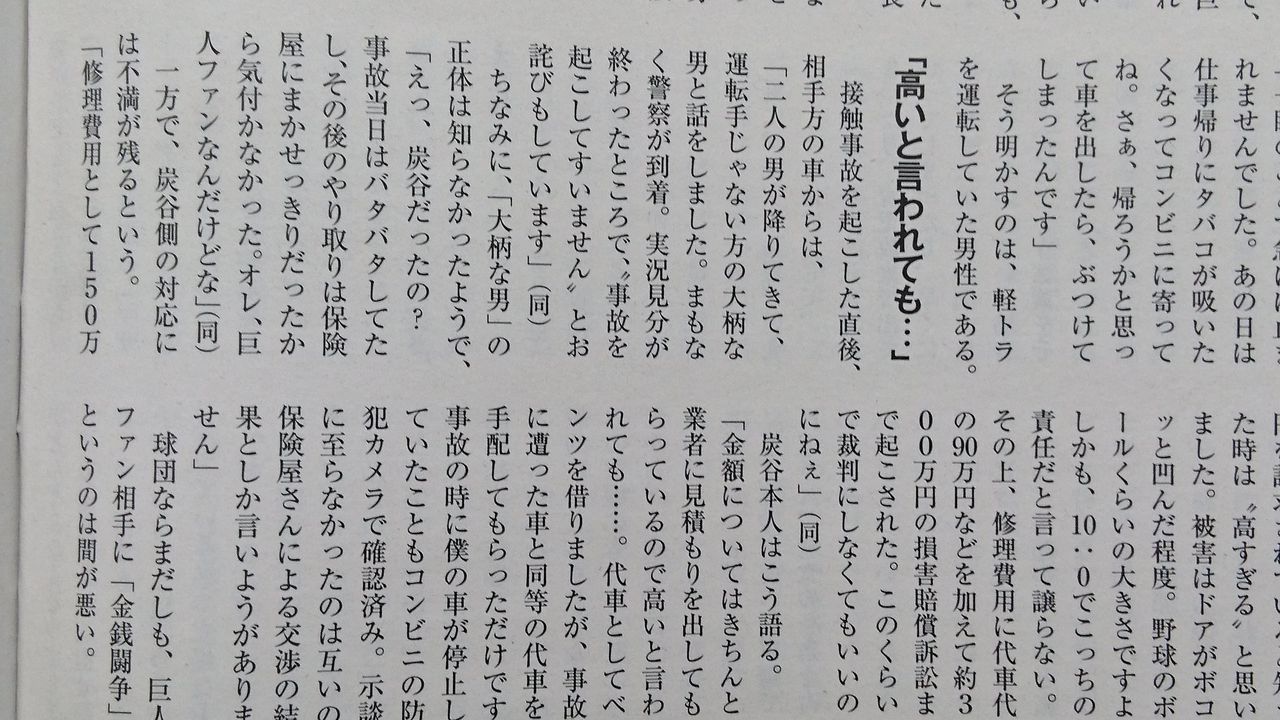 れませんでした。あの日は
仕事帰りにタバコが吸いた
くなってコンビニに寄って
ね。さぁ、帰ろうかと思っ
て車を出したら、ぶつけて
しまったんです」
そう明かすのは、軽トラ
を運転していた男性である。
「高いと言われても…」
接触事故を起こした直後、
相手方の車からは、
「二人の男が降りてきて、
運転手じゃない方の大柄な
男と話をしました。まもな
く警察が到着。実況見分が
終わったところで、〝事故を
起こしてすいません〟とお
詫びもしています」(同)
ちなみに、「大柄な男」の
正体は知らなかったようで、
「えっ、炭谷だったの?
事故当日はバタバタしてた
し、その後のやり取りは保険
屋にまかせっきりだったか
ら気付かなかった。オレ、巨
人ファンなんだけどな」(同)
一方で、炭谷側の対応に
は不満が残るという。
「修理費用として150万
た時は〝高すぎる〟と思い
ました。被害はドアがボコ
ッと凹んだ程度。野球のボ
ールくらいの大きさですよ
しかも、10:0でこっちの
責任だと言って譲らない。
その上、修理費用に代車代
の90万円などを加えて約3
00万円の損害賠償訴訟ま
で起こされた。このくらい
で裁判にしなくてもいいの
にねぇ」(同)
炭谷本人はこう語る。
「金額についてはきちんと
業者に見積もりを出しても
らっているので高いと言わ
れても……。代車としてベ
ンツを借りましたが、事故
に遭った車と同等の代車を
手配してもらっただけです
事故の時に僕の車が停止し
ていたこともコンビニの防
犯カメラで確認済み。示談
に至らなかったのは互いの
保険屋さんによる交渉の結
果としか言いようがありま
せん」
球団ならまだしも、巨人
ファン相手に「金銭闘争」
というのは間が悪い。